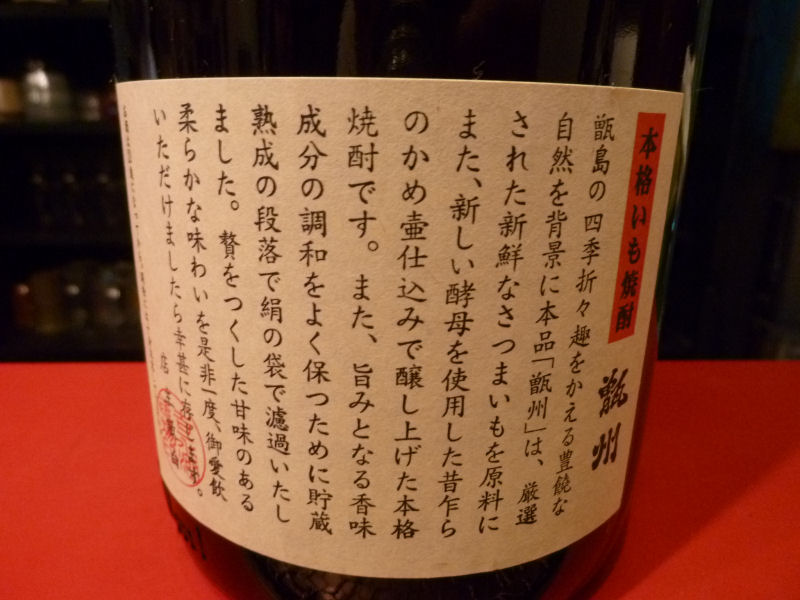 本格いも焼酎
甑州
甑島の四季折々趣をかえる豊饒な
自然を背景に本品「甑州」は、厳選
された新鮮なさつまいもを原料に
また、新しい酵母を使用した昔乍ら
のかめ壷仕込みで醸し上げた本格
焼酎です。また、旨みとなる香味
成分の調和をよく保つために貯蔵
熟成の段落で絹の袋で濾過いたし
ました。贅をつくした甘味のある
柔らかな味わいを是非一度、御愛飲
いただけましたら幸甚に存じます。
店主